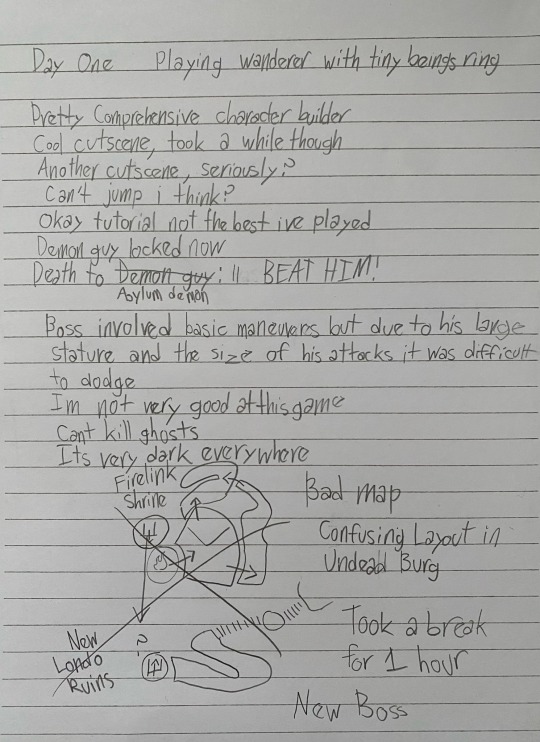 Day One Playing wanderer with tiny beings ring
Pretty Comprehensive character builder
Cool cutscene, took a while though
Another cutscene, seriously?
Can't jump i think?
Okay tutorial not the best ive played
Demon guy locked now
Death to Demon guy: II BEAT HIM!
Asylum demon
Boss involved basic maneuvers but due to his large
stature and the size of his attacks it was difficult
to dodge
Im not very good at this game
Cant kill ghosts
Its very dark everywhere
Firelink
Shrine
Bad map
Confusing Layout in
Undead Burg
New
Londo
Ruins
?
Took a break
for 1 hour
New Boss